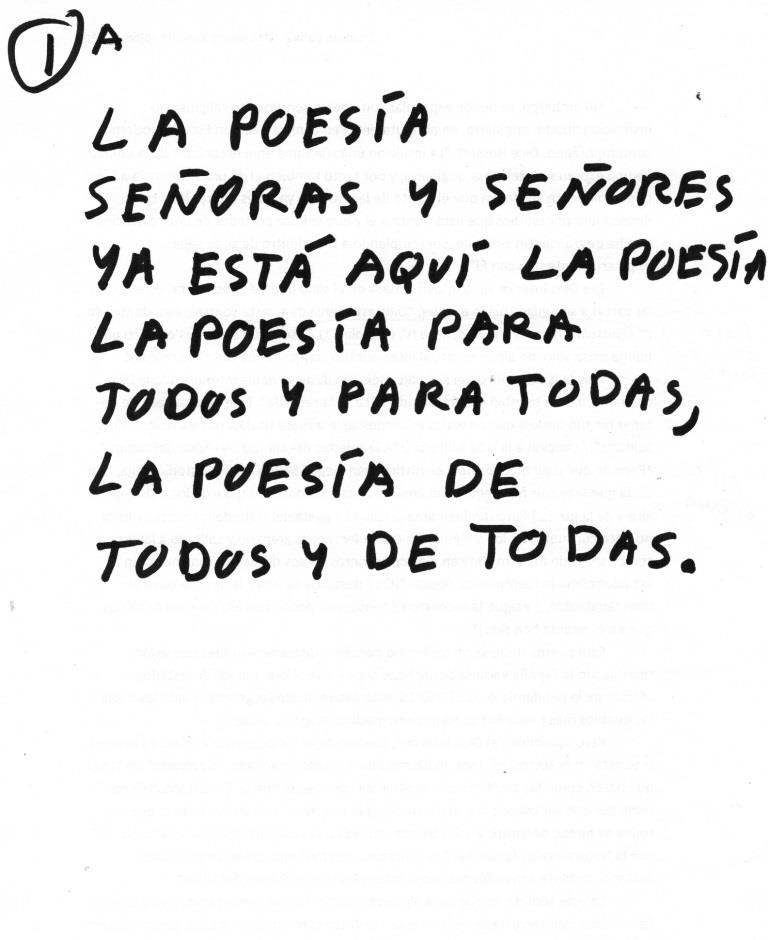 1 A
LA POESÍA
SEÑORAS Y SEÑORES
YA ESTÁ AQUÍ LA POESÍA
LA POESÍA PARA
TODOS Y PARA TODAS,
LA POESÍA DE
TODOS Y DE TODAS.